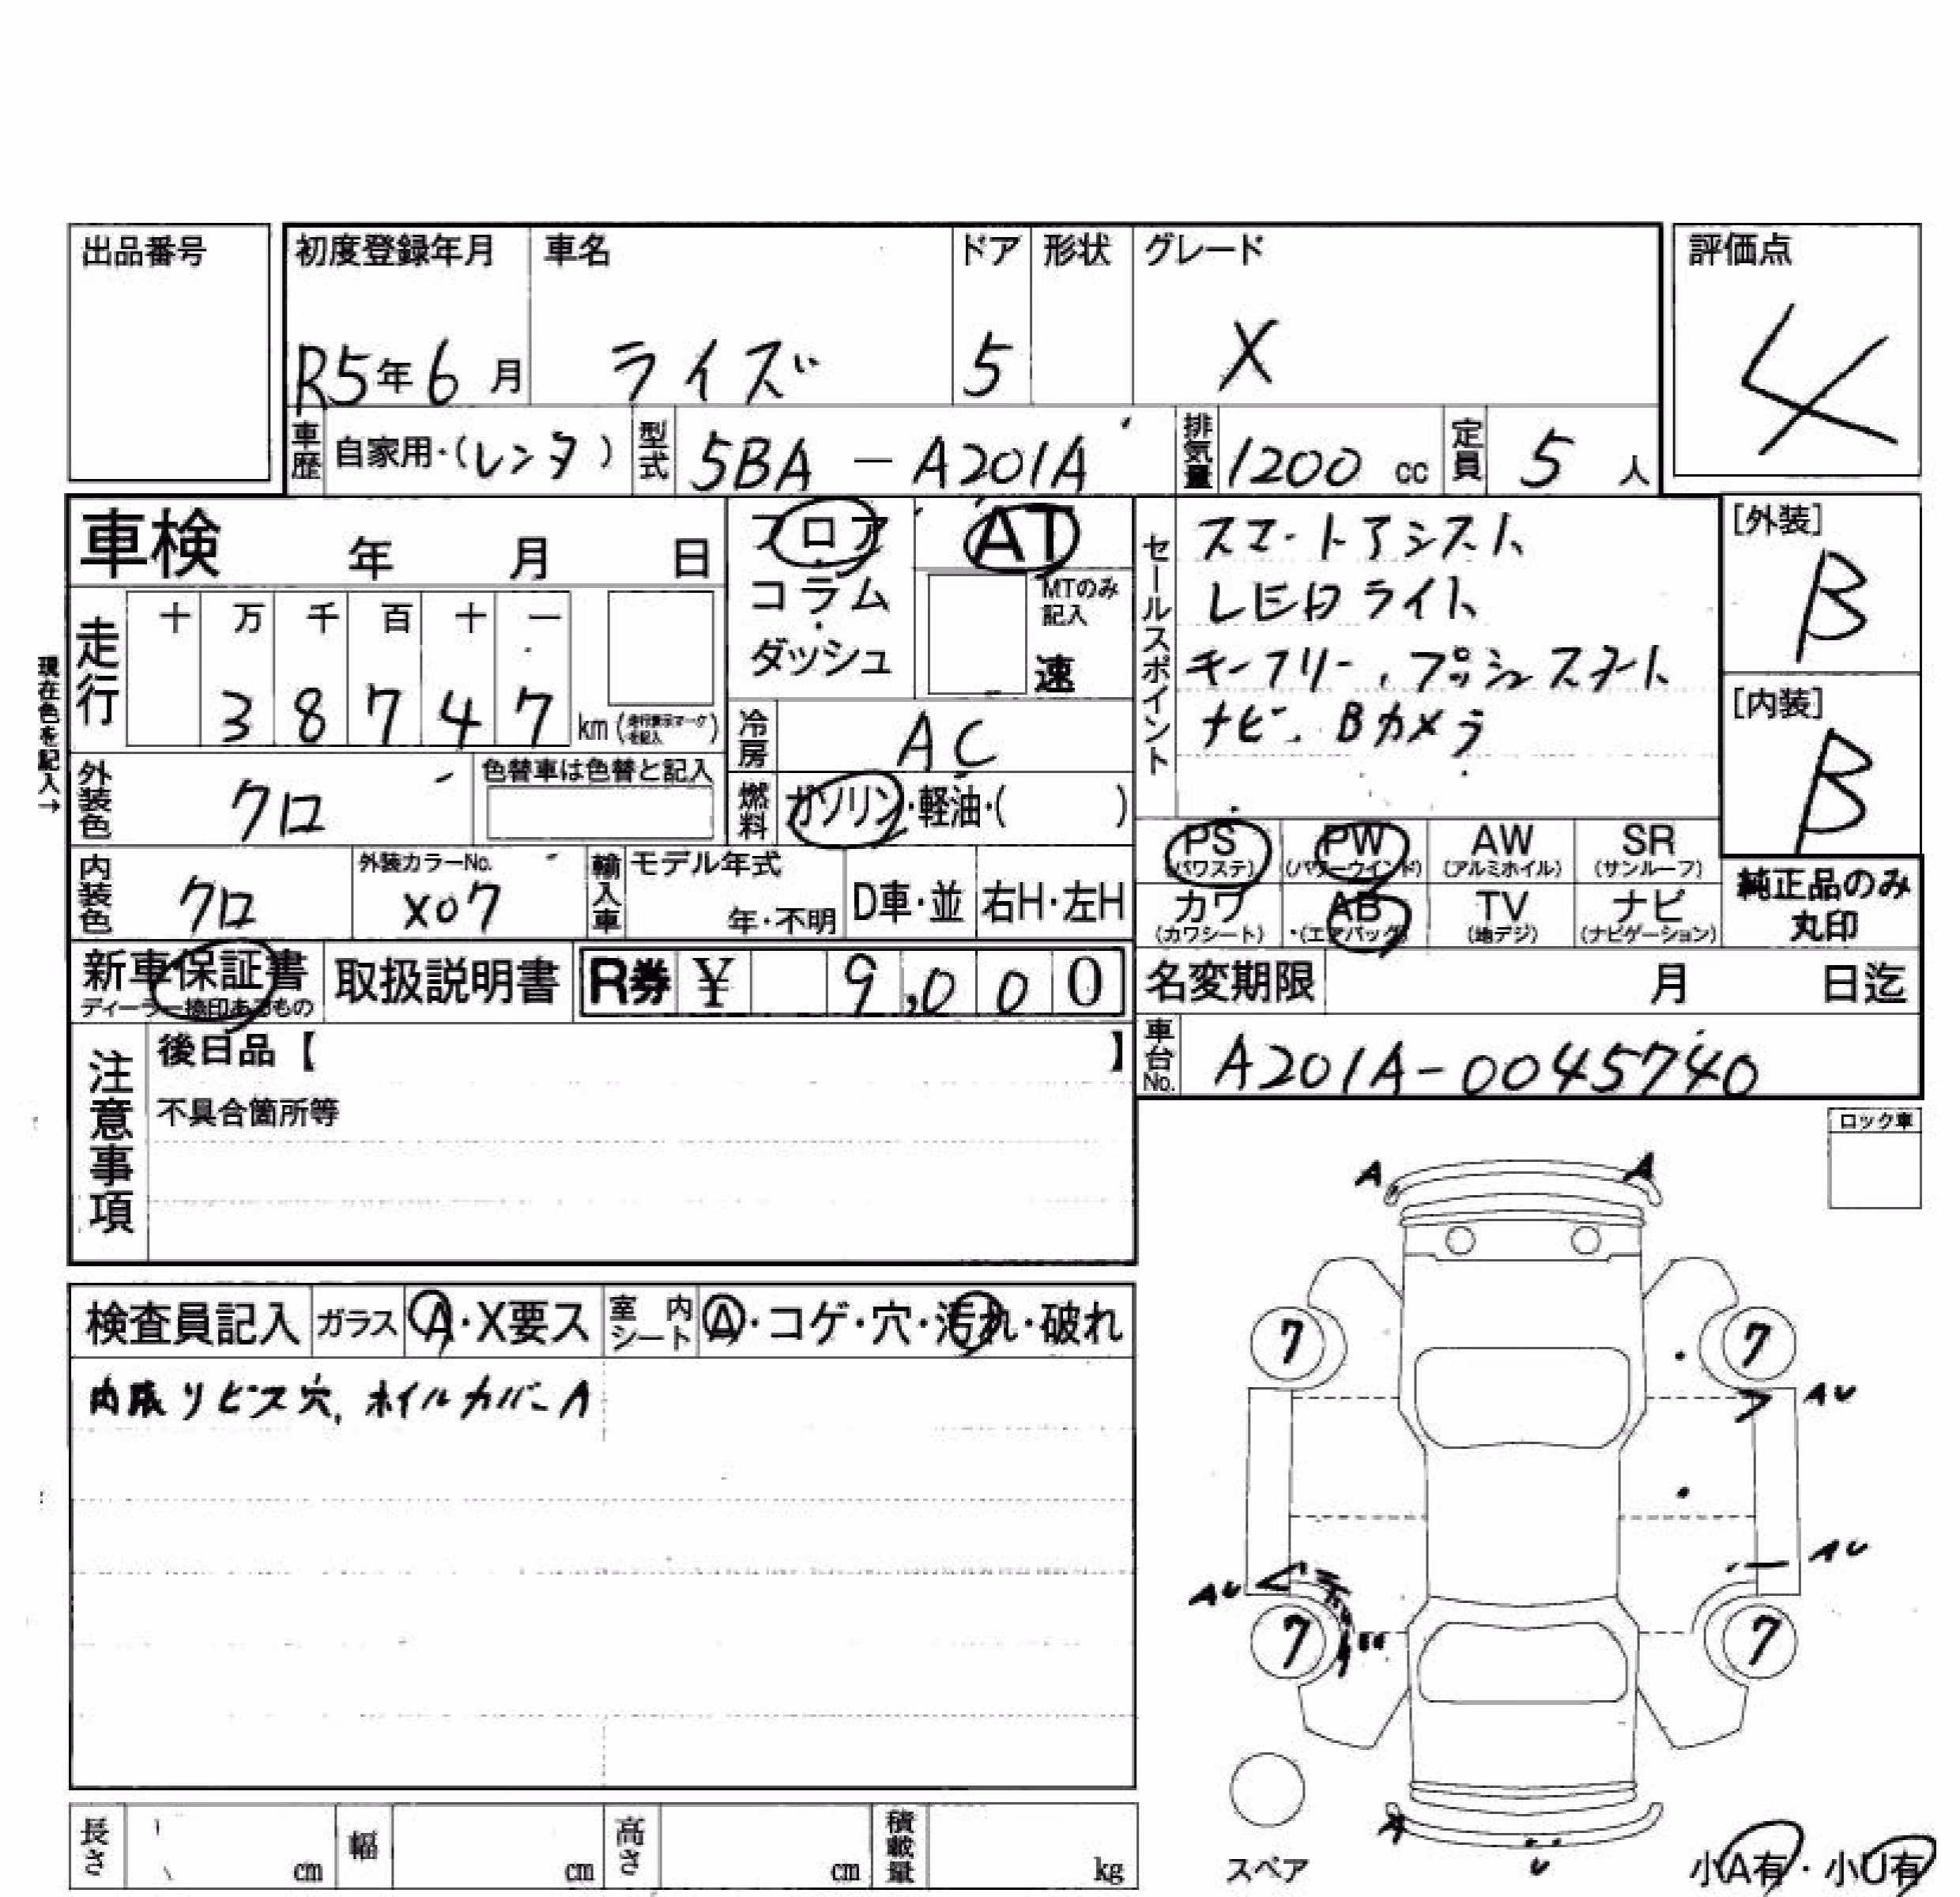 出品番号
初度登録年月 車名 ドア 形状 グレード 評価点
R5年6月 ライズ 5 X 4
車歴 自家用・(レンタ) 型式 5BA-A201A 排気量 1200 cc 定員 5 人
車検 年 月 日
フロア・コラム・ダッシュ
AT
MTのみ記入
速
セールスポイント
スマートアシスト
LEDライト
キーフリー、プッシュスタート
ナビ、Bカメラ
[外装]
B
[内装]
B
現在色を記入→
走行 十 万 千 百 十 一
3 8 7 4 7 km (走行表示マークを記入)
冷房 AC
外装色 クロ 色替車は色替と記入
燃料 ガソリン・軽油・( )
内装色 クロ 外装カラーNo. X07 輸入車 モデル年式 年・不明 D車・並 右H・左H
PS (パワステ) PW (パワーウインド) AW (アルミホイル) SR (サンルーフ)
カワ (カワシート) AB (エアバッグ) TV (地デジ) ナビ (ナビゲーション)
純正品のみ丸印
新車保証書 取扱説明書 R券 ¥ 9,000
ディーラー捺印あるもの
名変期限 月 日迄
車台No. A201A-0045740
注意事項
後日品【 】
不具合箇所等
ロック車
検査員記入 ガラス A・X要ス 室内シート A・コゲ・穴・汚れ・破れ
内張リビス穴、ホイルカバーA
A A
7 7
AU
AU
AU
7 7
A U
スペア
小A有・小U有
長さ cm 幅 cm 高さ cm 積載量 kg